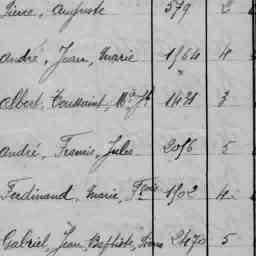 Pierre, Auguste 579 2
André, Jean, Marie 1964 4
"
Albert, Toussaint, 1471 3
André, Francis, Jules 2056 5
Ferdinand, Marie, Fçois 1902 4
Gabriel, Jean Baptiste, Pierre 2470 5